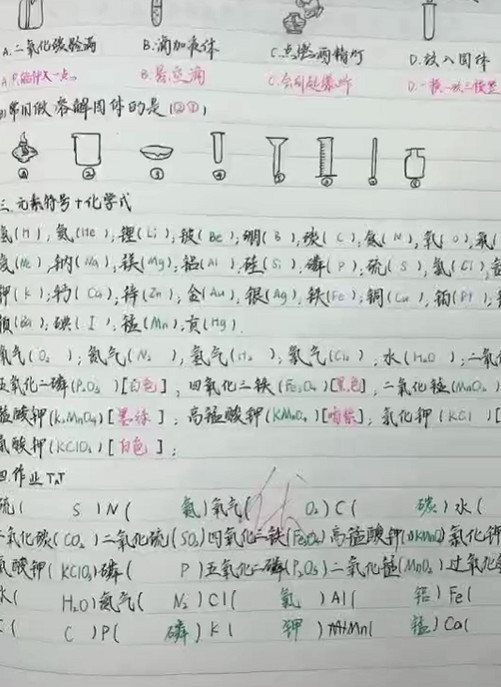 A.二氧化碳验满 B.滴加液体 C.点燃酒精灯 D.放入固体
B.悬空滴 C.会引起爆炸 D.一横
常用做溶解固体的是(②①)
三.元素符号+化学式
氢(H),氦(He),锂(Li),铍(Be),硼(B),碳(C),氮(N),氧(O),氟(
氖(Ne),钠(Na),镁(Mg),铝(Al),硅(Si),磷(P),硫(S),氯(Cl),
钾(K),钙(Ca),锌(Zn),金(Au),银(Ag),铁(Fe),铜(Cu),铂(Pt),
钡(Ba),碘(I),锰(Mn),汞(Hg).
氧气(O₂);氮气(N₂),氢气(H₂),氯气(Cl₂),水(H₂O),二氧化
五氧化二磷(P₂O₅)[白色],四氧化三铁(Fe₃O₄)[黑色],二氧化锰(MnO₂)
锰酸钾(K₂MnO₄)[墨绿],高锰酸钾(KMnO₄)[暗紫],氯化钾(KCl)[
氯酸钾(KClO₃)[白色];
四.作业TxT
硫( S )N( 氮)氧气( O₂)C( 碳)水(
二氧化碳(CO₂)二氧化硫(SO₂)四氧化三铁(Fe₃O₄)高锰酸钾(KMnO₄)氯化钾
氯酸钾(KClO₃)磷( P)五氧化二磷(P₂O₅)二氧化锰(MnO₂)过氧化
水( H₂O)氮气( N₂)Cl( 氯)Al( 铝)Fe(
( C )P( 磷)K( 钾)Mn( 锰)Ca(